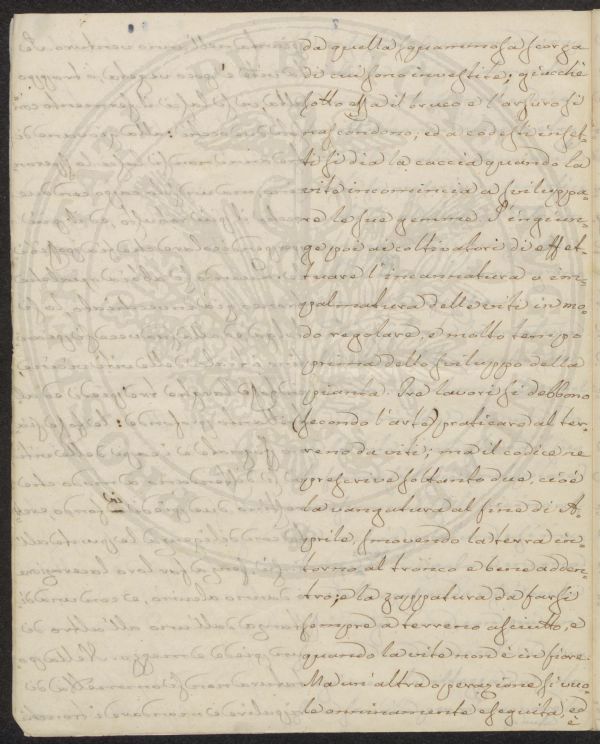 da quella squammosa scorza
di cui sono investite; giacchè
sotto essa il bruco e l'asuro si
nascondono; ed a codesti inset-
ti si dia la caccia quando la
vite incomincia a sviluppa-
re le sue gemme. S'ingiun-
ge poi ai coltivatori di effet-
tuare l'incannatura o im-
palmatura delle viti in mo-
do regolare, e molto tempo
prima dello sviluppo della
pianta. Tre lavori si debbono
(secondo l'arte) praticare al ter-
reno da viti; ma il codice ne
prescrive soltanto due, cioè
la vangatura al fine di A-
prile, smovendo la terra in-
torno al tronco e bene adden-
tro; e la zappatura da farsi
sempre a terreno asciutto, e
quando la vite non è in fiore.
Ma un'altra operazione si vuo-
le onninamente eseguita, ed
è